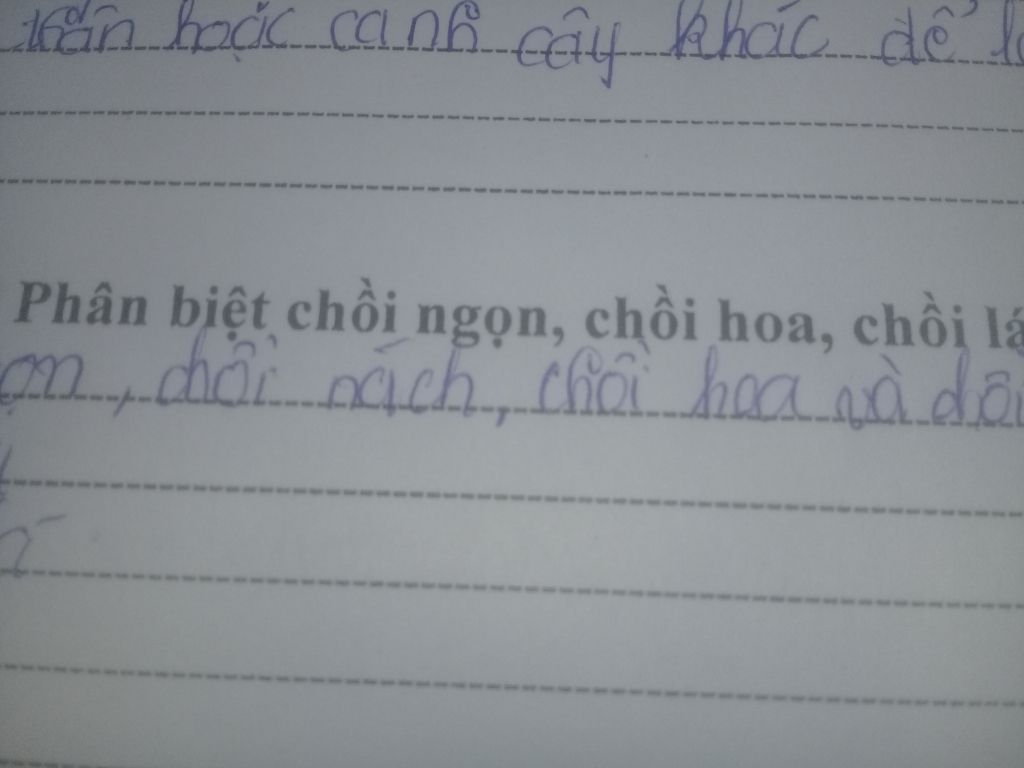 thân hoặc canh cây khác để
Phân biệt chồi ngọn, chồi hoa, chồi lá
, chồi nách, chồi hoa và